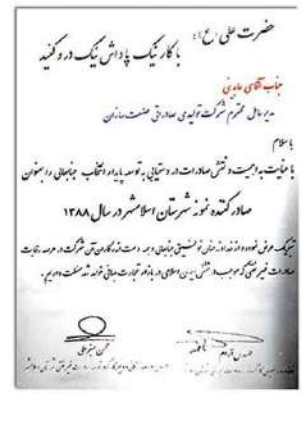 حضرت علی (ع):
با کار نیک پاداش نیک درو کنید
جناب آقای عابدینی
مدیر عامل محترم شرکت تولیدی صادراتی صنعت سازان
با سلام
با عنایت به اهمیت و نقش صادرات در دستیابی به توسعه پایدار انتخاب جنابعالی را بعنوان
صادر کننده نمونه شهرستان اسلامشهر در سال ۱۳۸۸
تبریک عرض نموده و از خداوند منان توفیق جنابعالی و همه دست اندرکاران آن شرکت در عرصه رقابت
صادرات غیر نفتی که موجب نقش ایران اسلامی در بازار تجارت جهانی خواهد شد مسئلت داریم.